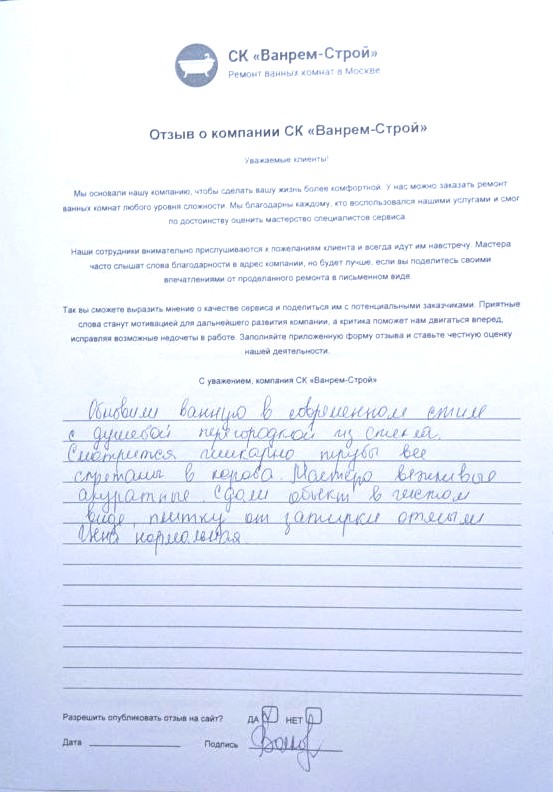 СК «Ванрем-Строй»
Ремонт ванных комнат в Москве
Отзыв о компании СК «Ванрем-Строй»
Уважаемые клиенты!
Мы основали нашу компанию, чтобы сделать вашу жизнь более комфортной. У нас можно заказать ремонт
ванных комнат любого уровня сложности. Мы благодарны каждому, кто воспользовался нашими услугами и смог
по достоинству оценить мастерство специалистов сервиса.
Наши сотрудники внимательно прислушиваются к пожеланиям клиента и всегда идут им навстречу. Мастера
часто слышат слова благодарности в адрес компании, но будет лучше, если вы поделитесь своими
впечатлениями от проделанного ремонта в письменном виде.
Так вы сможете выразить мнение о качестве сервиса и поделиться им с потенциальными заказчиками. Приятные
слова станут мотивацией для дальнейшего развития компании, а критика поможет нам двигаться вперед,
исправляя возможные недочеты в работе. Заполняйте приложенную форму отзыва и ставьте честную оценку
нашей деятельности.
С уважением, компания СК «Ванрем-Строй»
Обновили ванную в современном стиле
с душевой перегородкой из стекла.
Смотрится шикарно трубы все
спрятали в короба. Мастера вежливые
акуратные. Сдали объект в чистом
виде, плитку от затирки отмыли
Цена нормальная
Разрешить опубликовать отзыв на сайт? ДА V НЕТ
Дата Подпись